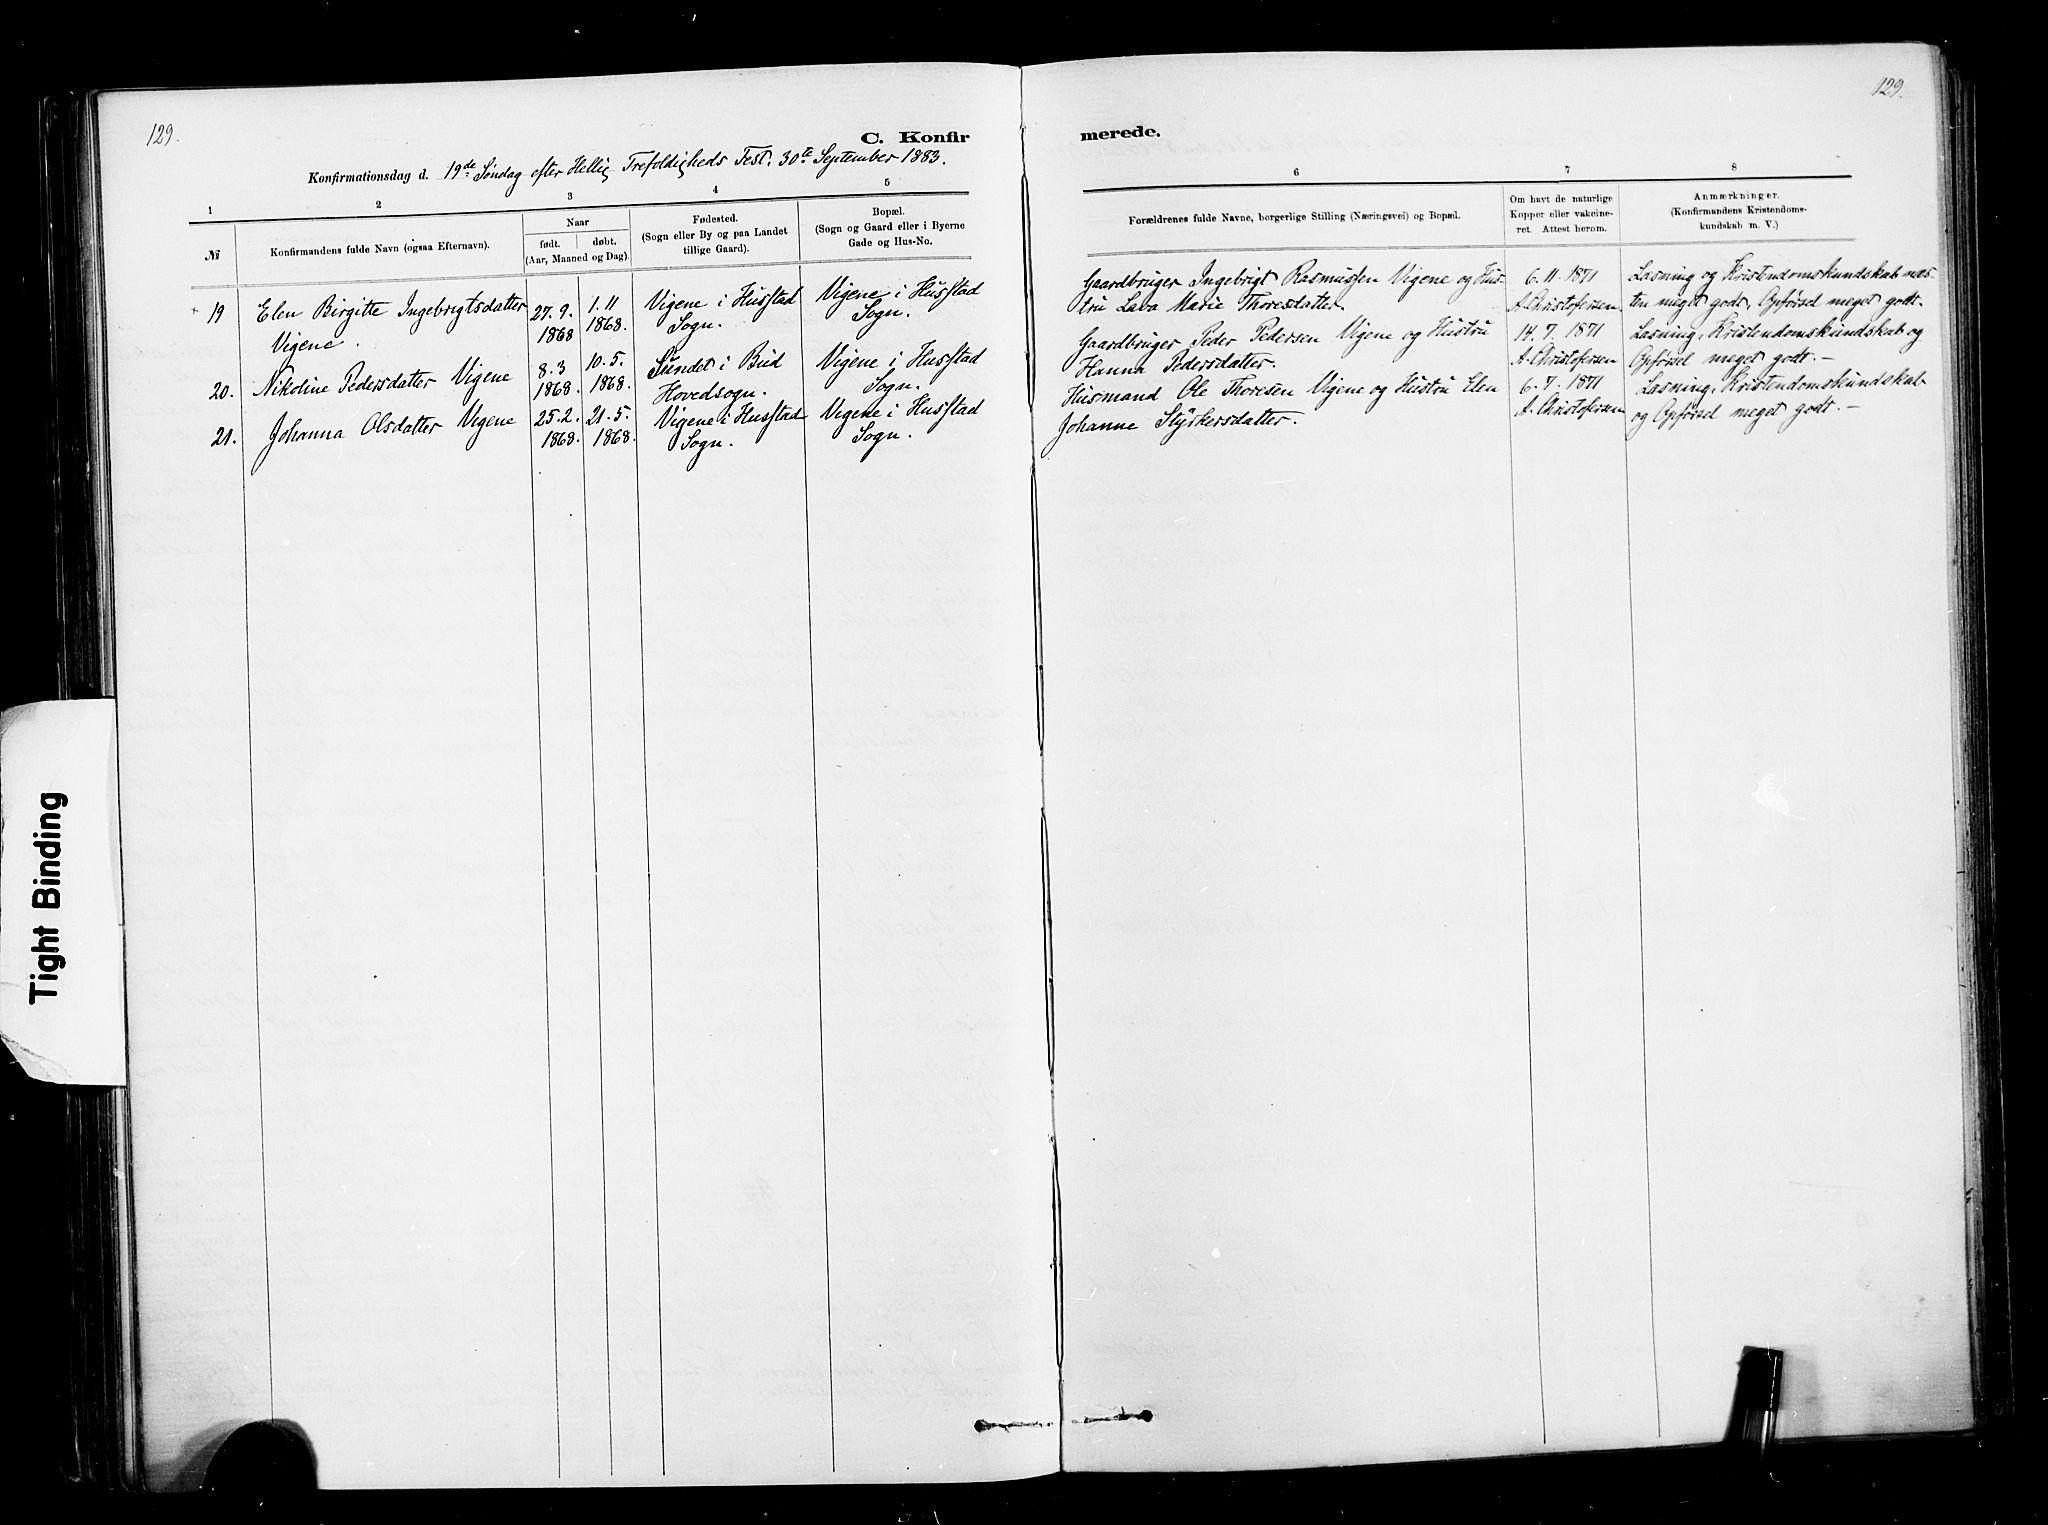 129.
129.
C. Konfir
merede.
Konfirmationsdag d. 19de Søndag efter Hellig Trefoldigheds Fest. 30te September 1883.
1 2 3 4 5
6 7 8
№
Konfirmandens fulde Navn (ogsaa Efternavn).
Naar
født. døbt.
(Aar, Maaned og Dag)
Fødested.
(Sogn eller By og paa Landet
tillige Gaard).
Bopæl.
(Sogn og Gaard eller i Byerne
Gade og Hus-No.
Forældrenes fulde Navne, borgerlige Stilling (Næringsvei) og Bopæl.
Om havt de naturlige
Kopper eller vakcine-
ret. Attest herom.
Anmærkninger.
(Konfirmandens Kristendoms-
kundskab m. V.)
19 Elen Birgitte Ingebrigtsdatter 27. 9. 1. 11 Vigene i Husstad Vigene i Husstad
Vigene. 1868 1868. Sogn. Sogn.
Gaardbruger Ingebrigt Rasmussen Vigene og Hus- 6. 11. 1871 Læsning og Kristendomskundskab næs-
tru Lava Marie Thoresdatter. A. Christofersen ten meget godt, Opførsel meget godt.
20. Nikoline Pedersdatter Vigene 8. 3 10. 5. Sundet i Bud Vigene i Husstad
1868. 1868. Hovedsogn. Sogn.
Gaardbruger Peder Pedersen Vigene og Hustru 14. 7. 1871 Læsning, Kristendomskundskab og
Hanna Pedersdatter. A. Christofersen Opførsel meget godt. —
21. Johanna Olsdatter Vigene 25. 2. 21. 5. Vigene i Husstad Vigene i Husstad
1868. 1868. Sogn. Sogn.
Husmand Ole Thoresen Vigene og Hustru Elen 6. 7. 1871 Læsning, Kristendomskundskab
Johanne Styrkersdatter. A. Christofersen og Opførsel meget godt. —
Tight Binding